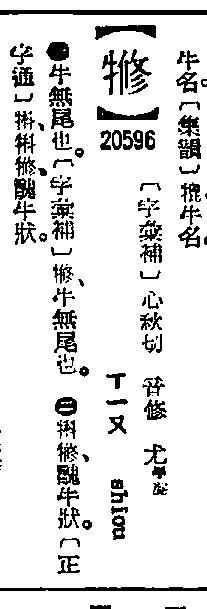 牛名。〔集韻〕㹌牛名。
【𤛯】
20596
〔字彙補〕心秋切 音修 尤
ㄒㄧㄡ shiou
㊀牛無尾也。〔字彙補〕𤛯、牛無尾也。㊁𤙭𤛯、醜牛狀。〔正
字通〕𤙭、𤙭𤛯、醜牛狀。